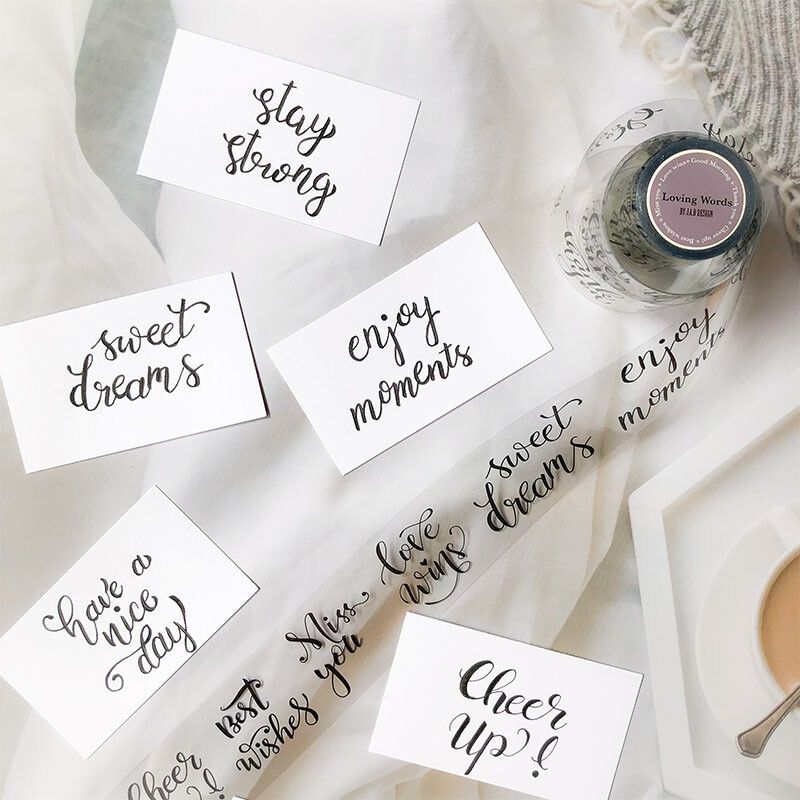 stay
strong
Loving Words
BY I.A.B DESIGN
Love wins • Good Morning • Thank you • Cheer up! • Best wishes • Miss you •
sweet
dreams
enjoy
moments
enjoy
moments
sweet
dreams
love
wins
Miss
you
Best
wishes
Cheer
!
have a
nice
day
Cheer
up!